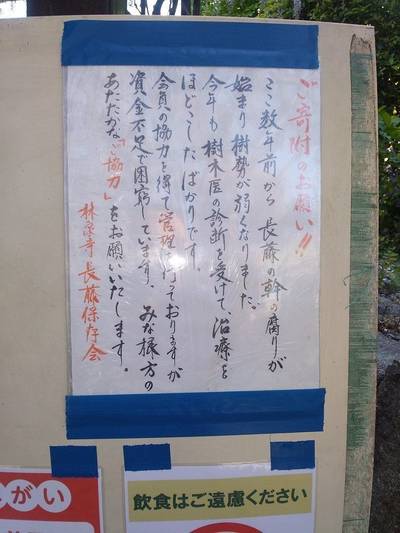 ご寄附のお願い!!
ここ数年前から 長藤の幹の腐りが
始まり 樹勢が弱くなりました。
今年も 樹木医の診断を受けて、治療を
ほどこしたばかりです。
会員の協力を得て管理を行っておりますが
資金不足で困窮しています。 みな様方の
あたたかな「ご協力」をお願いいたします。
林泉寺 長藤保存会
がい
飲食はご遠慮ください